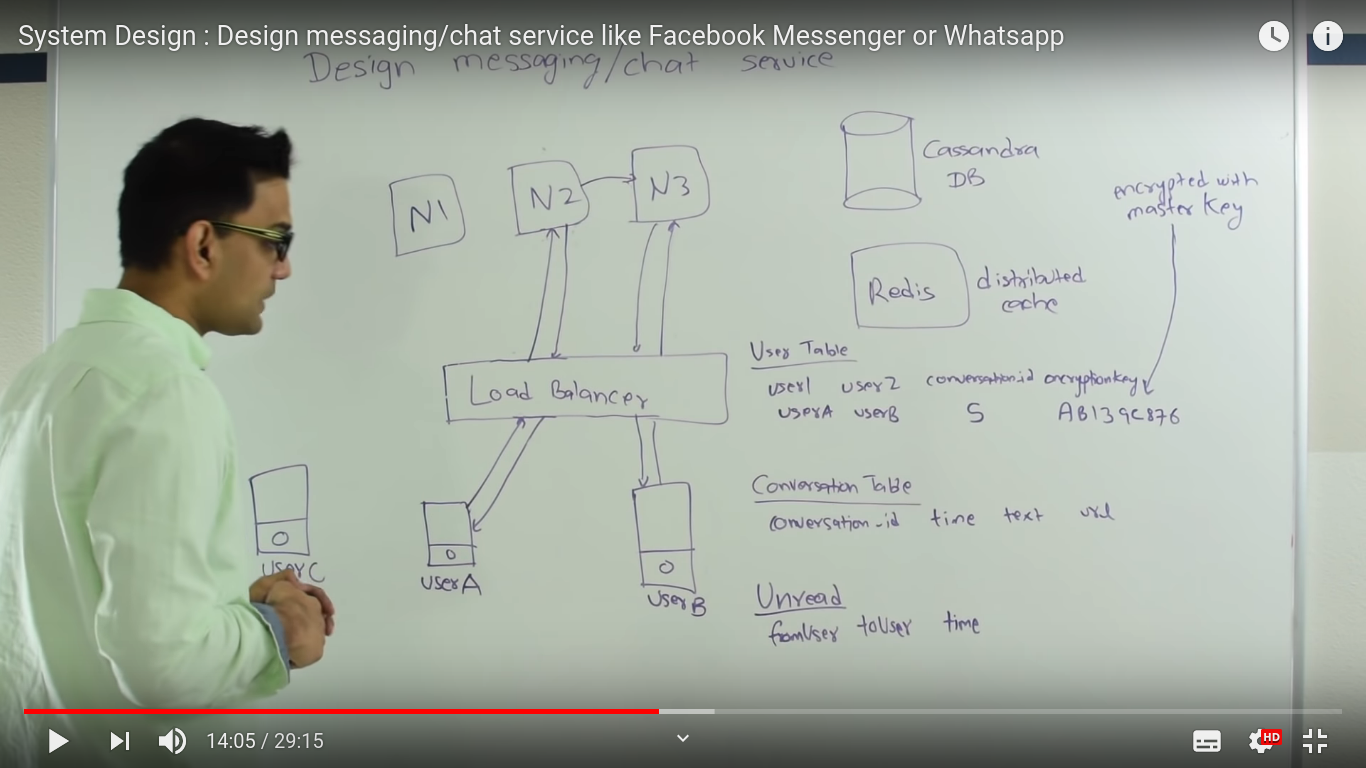 System Design : Design messaging/chat service like Facebook Messenger or Whatsapp
Design messaging/chat service
N1
N2
N3
Cassandra
DB
encrypted with
master key
Redis
distributed
cache
Load Balancer
User Table
user1 user2 conversationid encryptionkey
userA userB 5 AB139C876
Conversation Table
conversation-id time text url
Unread
fromUser toUser time
userC
userA
userB
14:05 / 29:15
HD